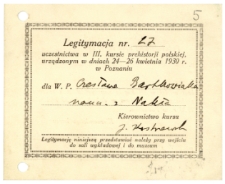 5
Legitymacja nr. 27
uczestnictwa w III. kursie prehistorji polskiej,
urządzonym w dniach 24—26 kwietnia 1930 r.
w Poznaniu
dla W. P. Czesława Bartkowiaka
naucz. z Nakła
Kierownictwo kursu
J. Kostrzewski
Legitymację niniejszą przedstawiać należy przy wejściu
do sali wykładowej i do muzeum